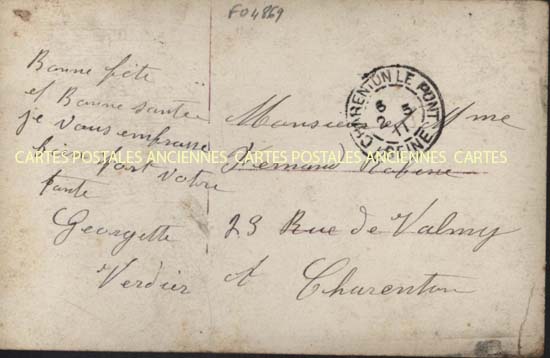 FO4869
Bonne fête
et Bonne santée
je vous embrasse
bien fort votre
tante
Georgette
Verdier
Monsieur et Mme
Fernand
23 Rue de Valmy
à Charenton
CHARENTON LE PONT
5 5
2 11
SEINE
CARTES POSTALES ANCIENNES CARTES POSTALES ANCIENNES CARTES